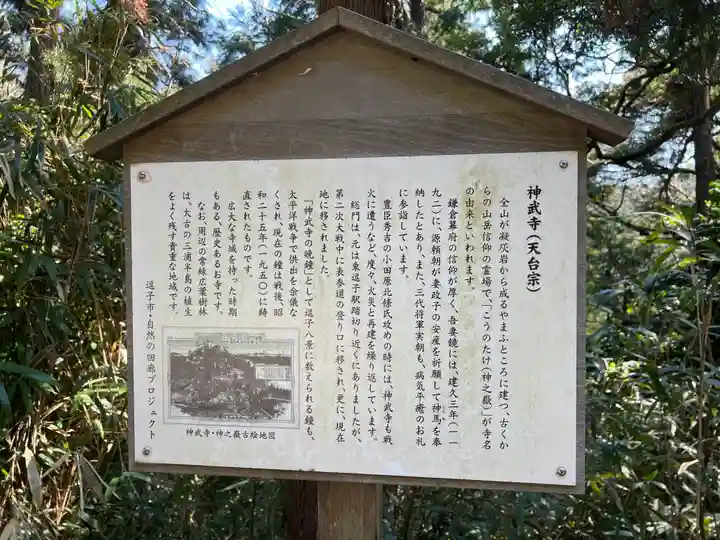 神武寺(天台宗)
全山が凝灰岩から成るやまふところに建つ、古くか
らの山岳信仰の霊場で、「こうのたけ(神之嶽)」が寺名
の由来といわれます。
鎌倉幕府の信仰が厚く、吾妻鏡には、建久三年(一一
九二)に、源頼朝が妻政子の安産を祈願して神馬を奉
納したとあり、また、三代将軍実朝も、病気平癒のお礼
に参詣しています。
豊臣秀吉の小田原北條氏攻めの時には、神武寺も戦
火に遭うなど、度々、火災と再建を繰り返しています。
総門は、元は東逗子駅踏切り近くにありましたが、
第二次大戦中に表参道の登り口に移され、更に、現在
地に移されました。
「神武寺の晩鐘」として逗子八景に数えられる鐘も、
太平洋戦争で供出を余儀な
くされ、現在の鐘は戦後、昭
和二十五年(一九五〇)に鋳
直されたものです。
広大な寺域を持った時期
もある、歴史あるお寺です。
なお、周辺の常緑広葉樹林
は、太古の三浦半島の植生
をよく残す貴重な地域です。
逗子市・自然の回廊プロジェクト
神武寺・神之嶽古絵地図